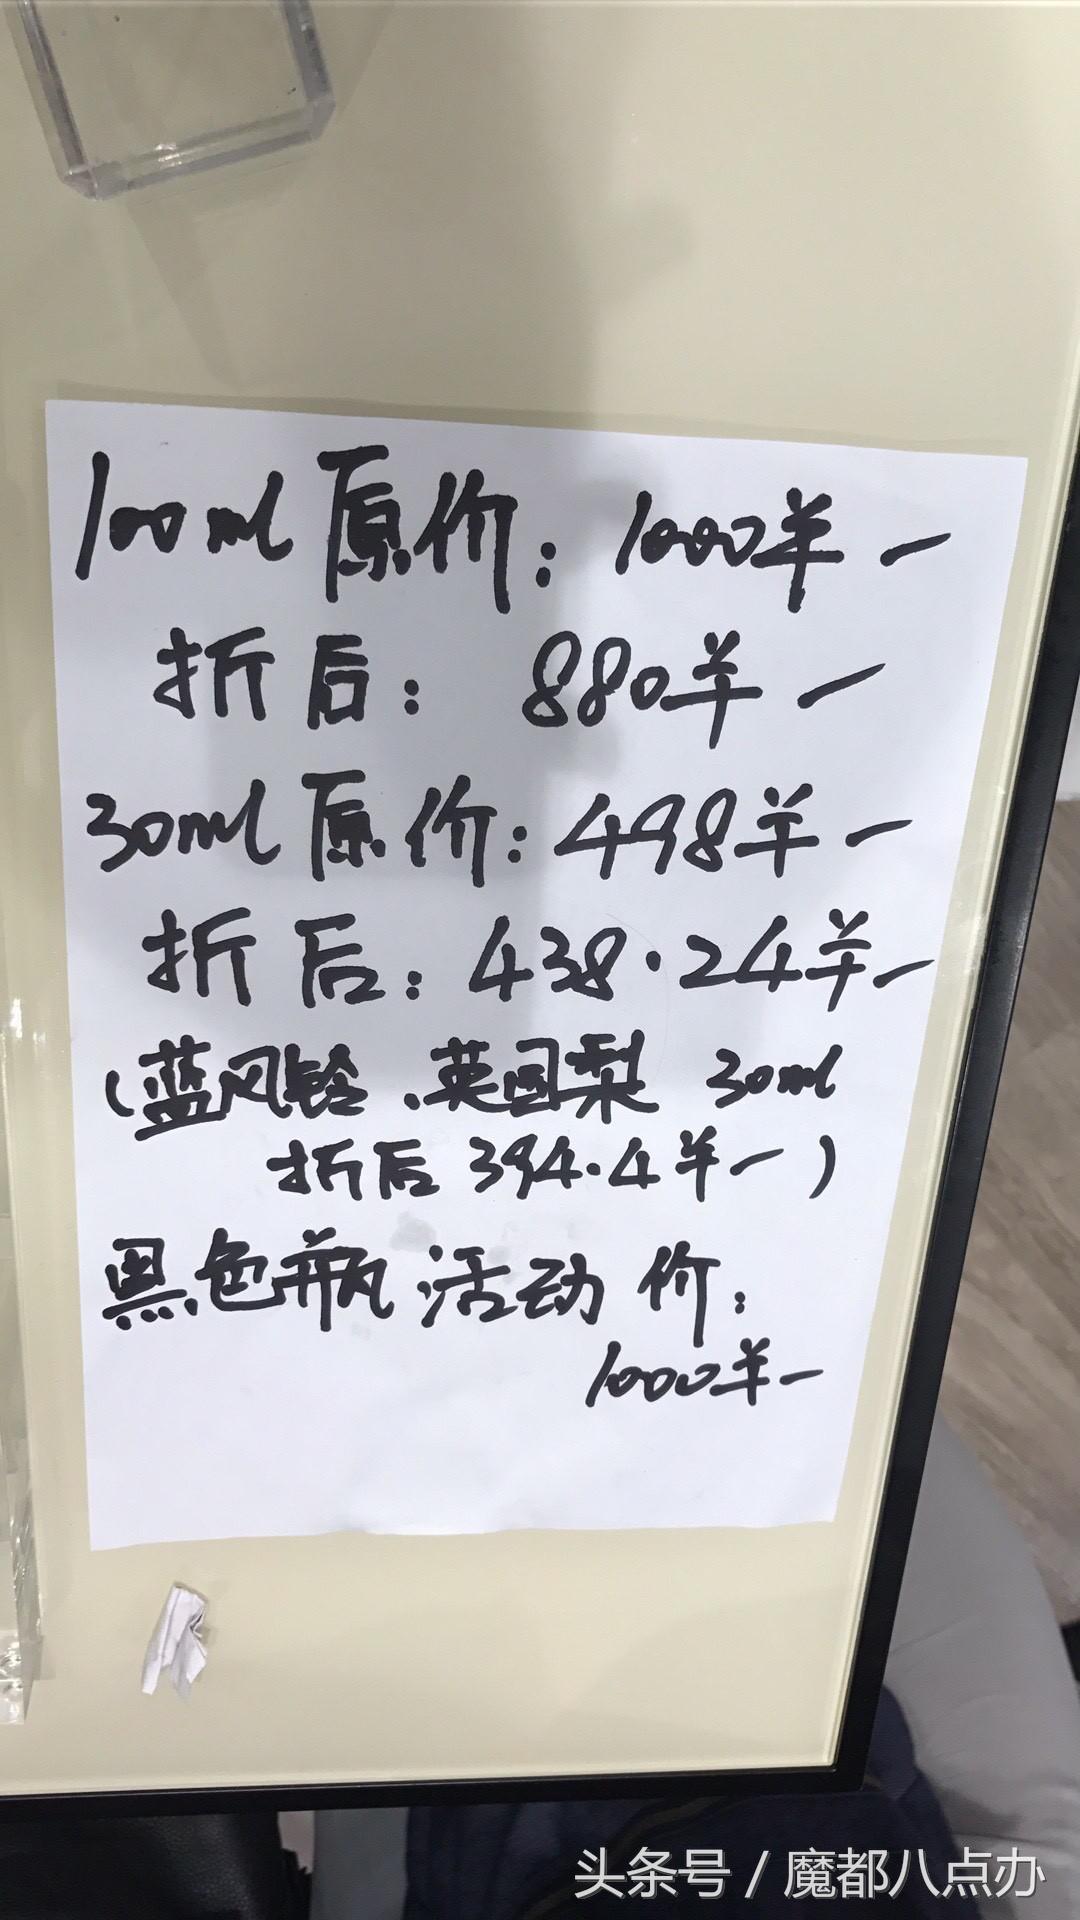 100ml原价：1000羊一
折后：880羊一
30ml原价：498羊一
折后：438.24羊一
（蓝风铃、英国梨 30ml
折后 394.4羊一）
黑色瓶活动价：
1000羊一
头条号 / 魔都八点办